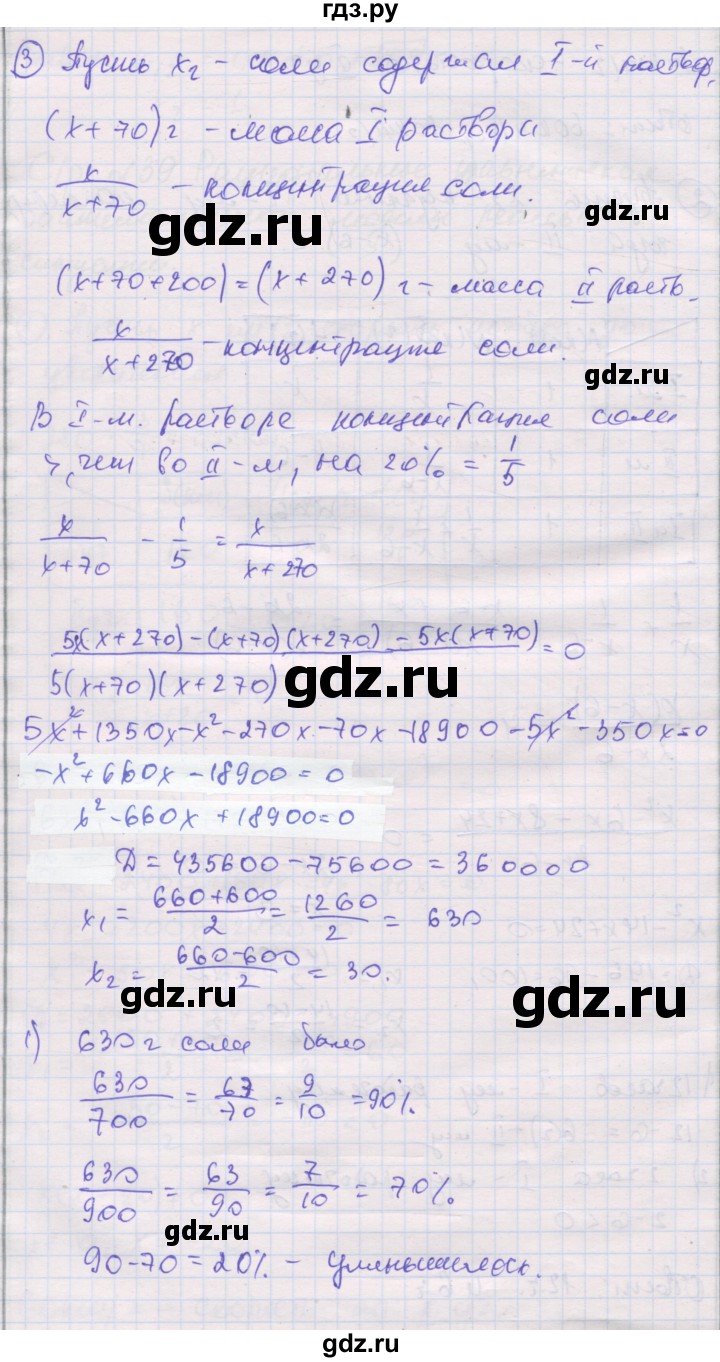 гдз.ру
③ Пусть x г - соли содержал I-й раствор,
(x+70) г - масса I раствора
x/(x+70) - концентрация соли.
gdz.ru
(x+70+200)=(x+270) г - масса II раств.
x/(x+270) - концентрация соли.
gdz.ru
В I-м. растворе концентрация соли
>, чем во II-м, на 20% = 1/5
gdz.ru
x/(x+70) - 1/5 = x/(x+270)
gdz.ru
(5x(x+270)-(x+70)(x+270)-5x(x+70))/(5(x+70)(x+270)) = 0
gdz.ru
5x²+1350x-x²-270x-70x-18900-5x²-350x=0
-x²+660x-18900=0
x²-660x+18900=0
gdz.ru
Д=435600-75600=360000
x₁ = (660+600)/2 = 1260/2 = 630
x₂ = (660-600)/2 = 30.
gdz.ru
gdz.ru
1) 630 г соли было
630/700 = 63/70 = 9/10 = 90%.
gdz.ru
630/900 = 63/90 = 7/10 = 70%.
gdz.ru
90-70=20% - уменьшилось.
gdz.ru
gdz.ru